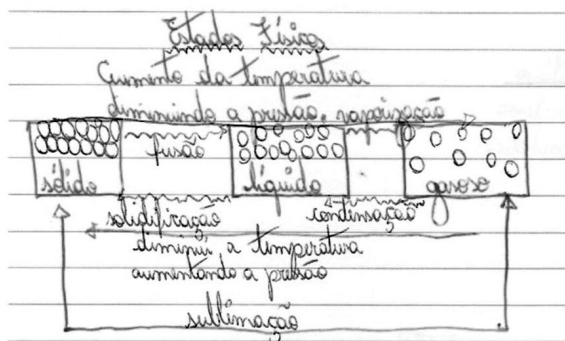 Estados Físico
Aumento da temperatura
diminuindo a pressão, vaporização
fusão
sólido líquido gasoso
solidificação condensação
diminui a temperatura
aumentando a pressão
sublimação